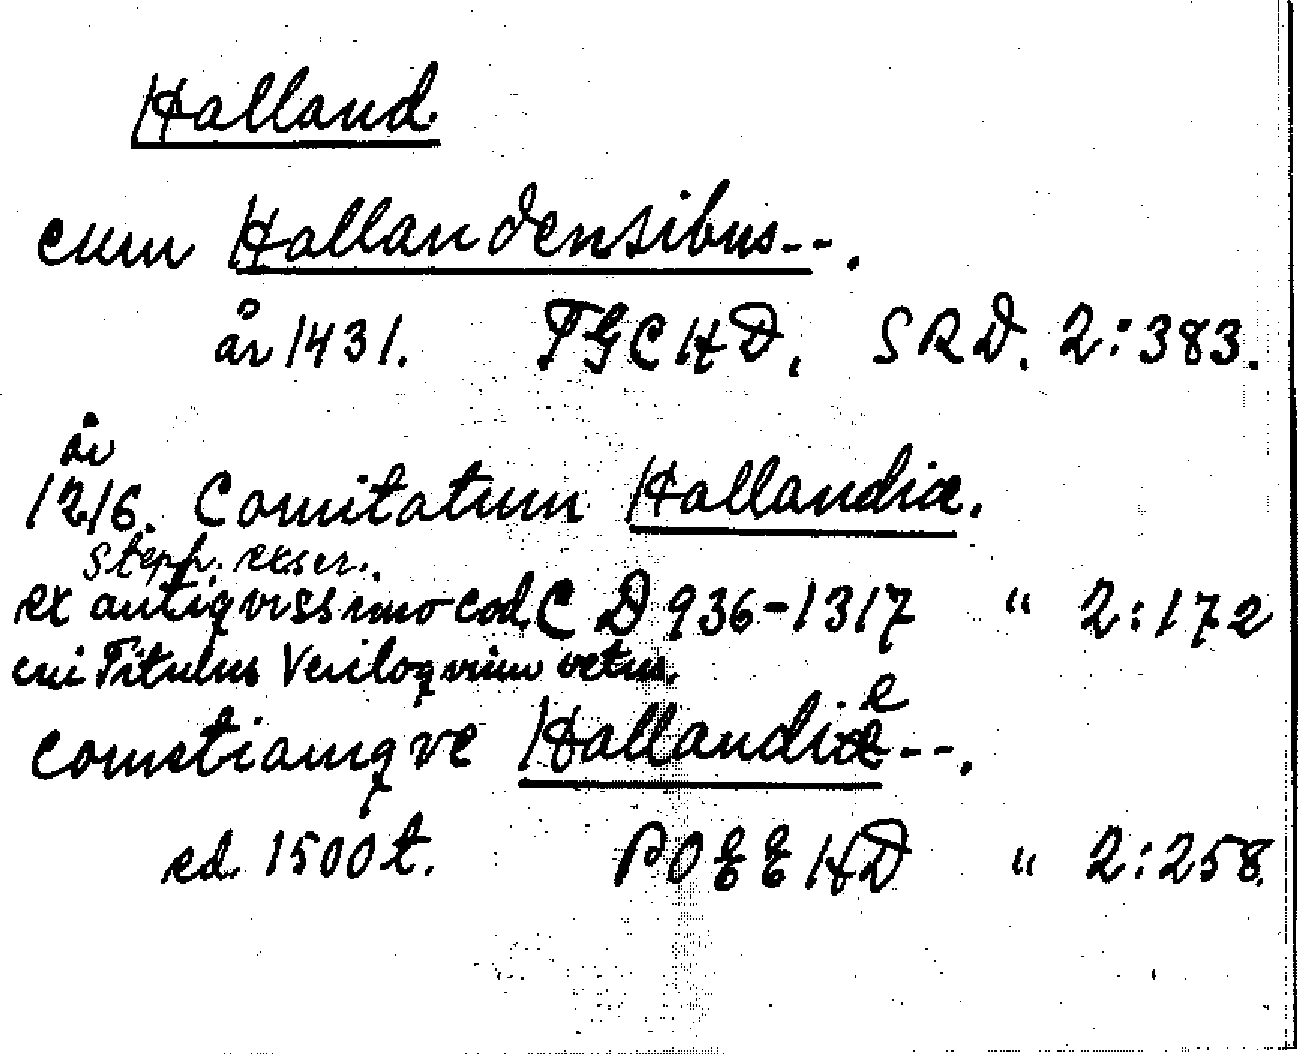 Halland
cum Hallandensibus--.
år 1431. PGCHD, SRD. 2:383.
år
1216. Comitatum Hallandiæ.
Steph. exser.
ex antiqvissimo cod. CD 936-1317 " 2:172
cui Titulus Veriloqvium vetus.
e
comitiamqve Hallandiæ--.
ed. 1500t. POEEHD " 2:258.